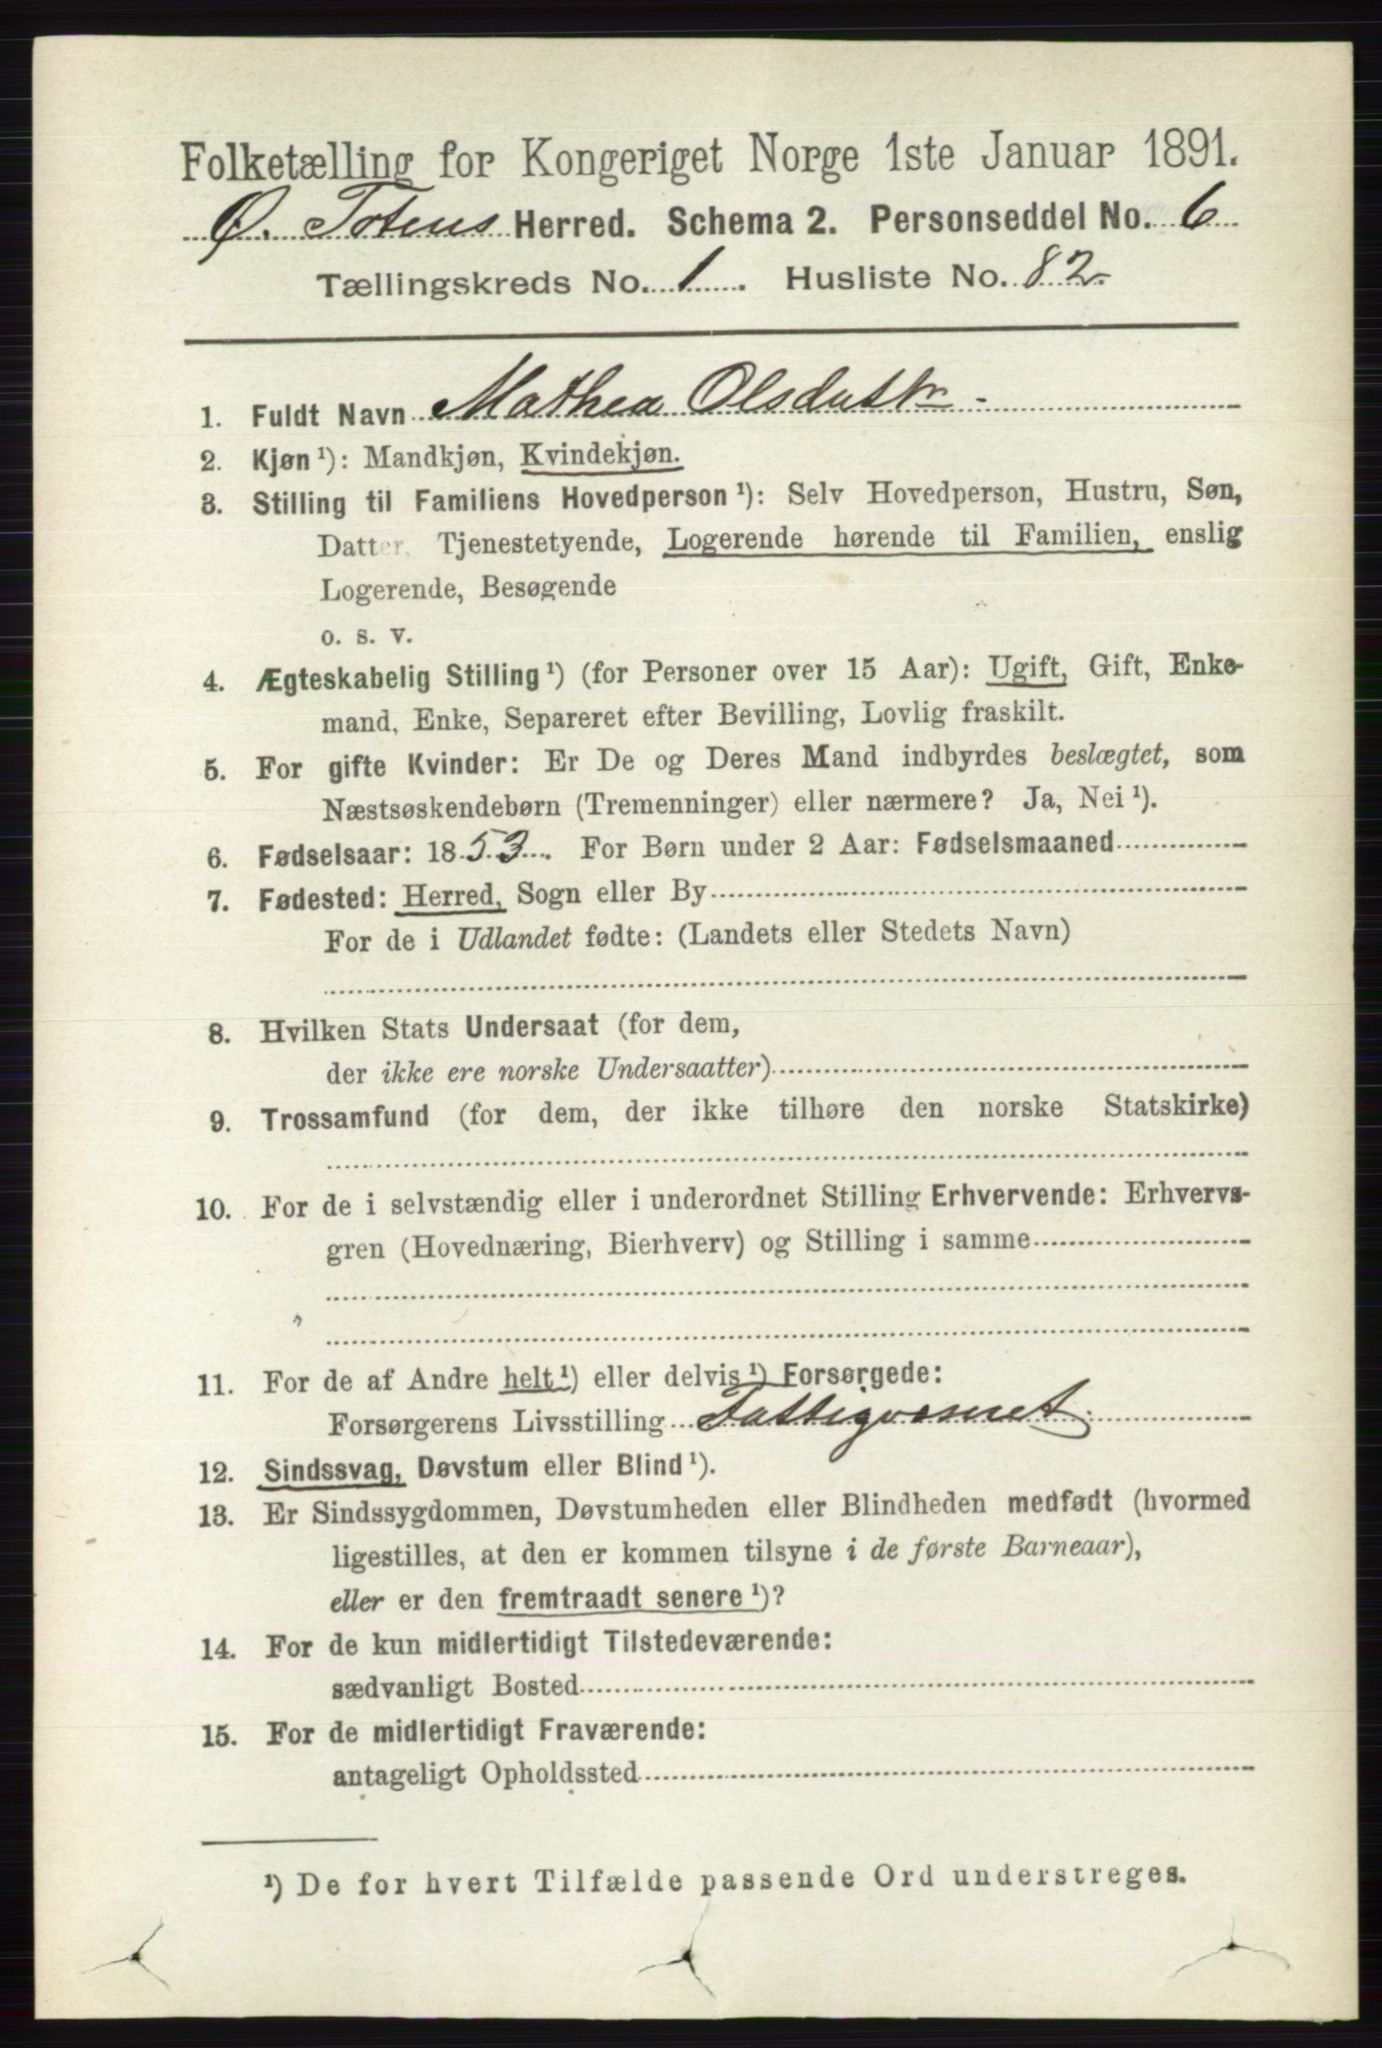 Folketælling for Kongeriget Norge 1ste Januar 1891.
Ø. Totens Herred. Schema 2. Personseddel No. 6
Tællingskreds No. 1. Husliste No. 82.
1. Fuldt Navn Mathea Olsdattr
2. Kjøn ¹): Mandkjøn, Kvindekjøn.
3. Stilling til Familiens Hovedperson ¹): Selv Hovedperson, Hustru, Søn,
Datter, Tjenestetyende, Logerende hørende til Familien, enslig
Logerende, Besøgende
o. s. v.
4. Ægteskabelig Stilling ¹) (for Personer over 15 Aar): Ugift, Gift, Enke-
mand, Enke, Separeret efter Bevilling, Lovlig fraskilt.
5. For gifte Kvinder: Er De og Deres Mand indbyrdes beslægtet, som
Næstsøskendebørn (Tremenninger) eller nærmere? Ja, Nei ¹).
6. Fødselsaar: 1853. For Børn under 2 Aar: Fødselsmaaned
7. Fødested: Herred, Sogn eller By
For de i Udlandet fødte: (Landets eller Stedets Navn)
8. Hvilken Stats Undersaat (for dem,
der ikke ere norske Undersaatter)
9. Trossamfund (for dem, der ikke tilhøre den norske Statskirke)
10. For de i selvstændig eller i underordnet Stilling Erhvervende: Erhvervs-
gren (Hovednæring, Bierhverv) og Stilling i samme
11. For de af Andre helt ¹) eller delvis ¹) Forsørgede:
Forsørgerens Livsstilling Fattigvæsenet
12. Sindssvag, Døvstum eller Blind ¹).
13. Er Sindssygdommen, Døvstumheden eller Blindheden medfødt (hvormed
ligestilles, at den er kommen tilsyne i de første Barneaar),
eller er den fremtraadt senere ¹)?
14. For de kun midlertidigt Tilstedeværende:
sædvanligt Bosted
15. For de midlertidigt Fraværende:
antageligt Opholdssted
¹) De for hvert Tilfælde passende Ord understreges.